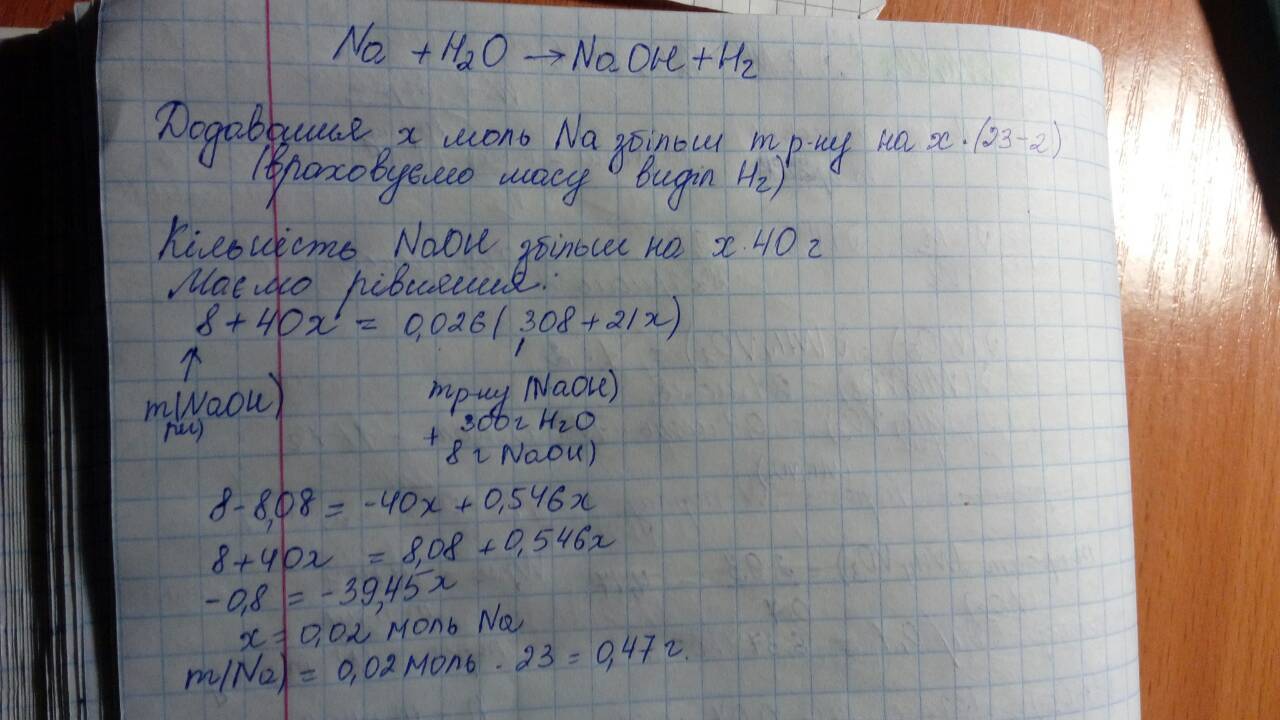 Na + H₂O → NaOH + H₂
Додавання x моль Na збільш m р-ну на x·(23-2)
(враховуємо масу виділ H₂)
Кількість NaOH збільш на x·40 г
Маємо рівняння:
8 + 40x = 0,026( 308 + 21x)
m(NaOH)
m р-ну (NaOH)
300г H₂O
+
8 г NaOH)
8 - 8,08 = -40x + 0,546x
8 + 40x = 8,08 + 0,546x
-0,8 = -39,45x
x = 0,02 моль Na
m(Na) = 0,02 моль · 23 = 0,47 г.